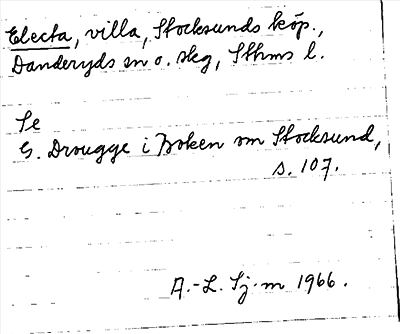 Electa, villa, Stocksunds köp.,
Danderyds sn o. skg, Sthms l.
Se
G. Drougge i Boken om Stocksund,
s. 107.
A.-L. Sj-m 1966.